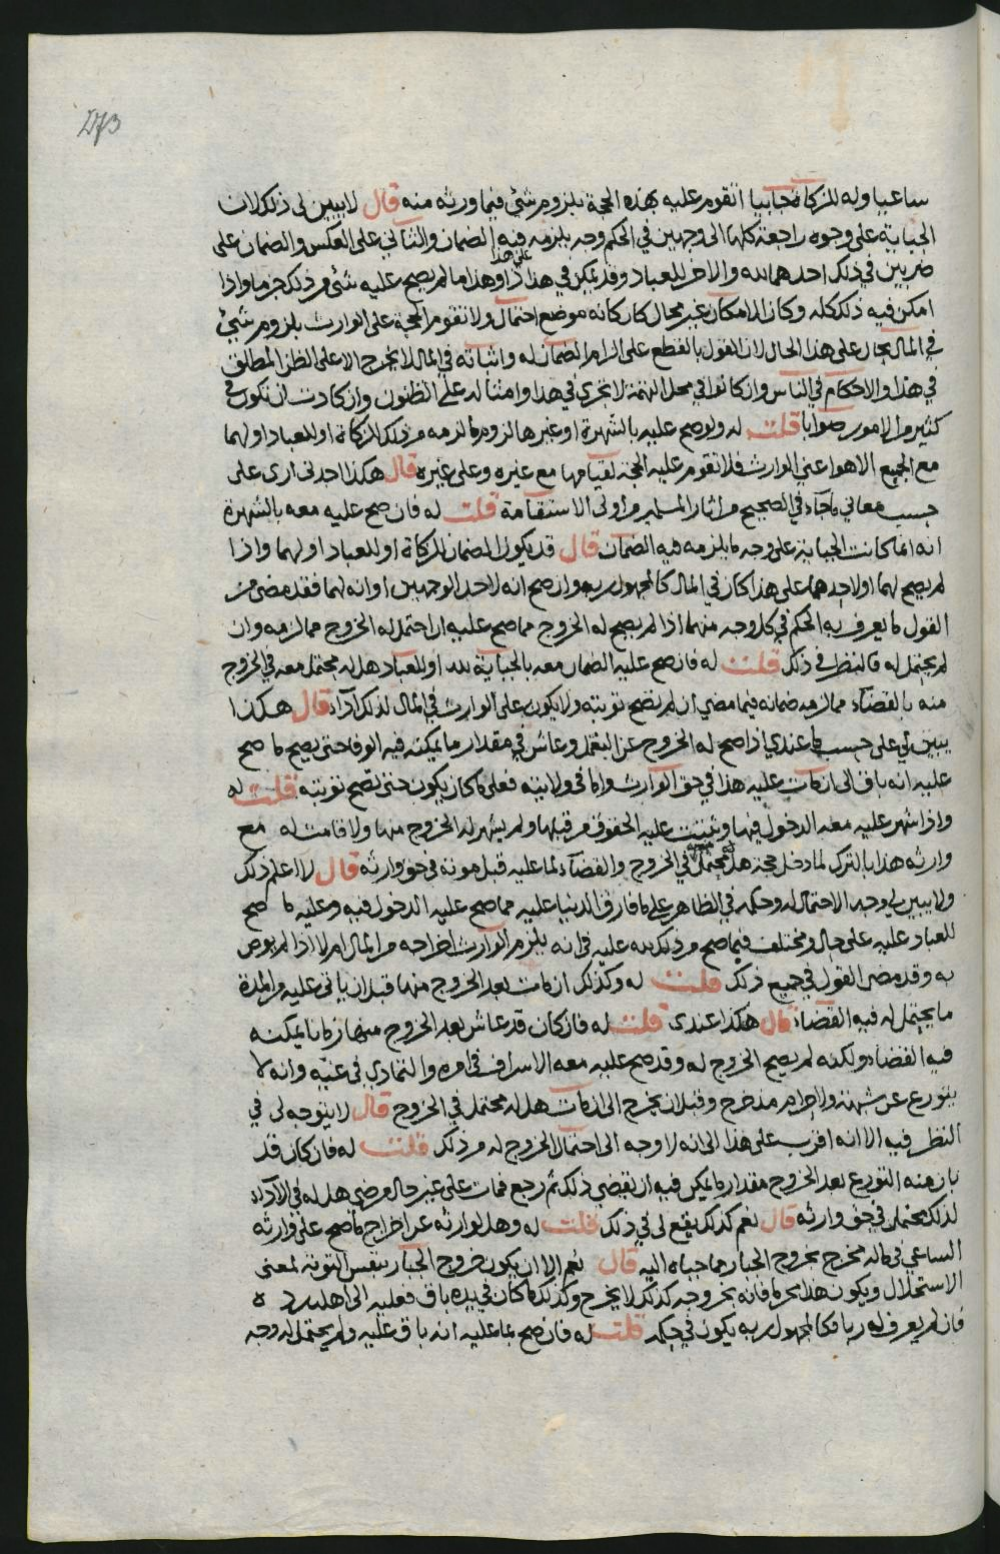 273
ساعيا وله للزكاة جابيا اتقوم عليه بهذه الحجة بلزوم شئ فيما ورثه منه قال لا يبين لي ذلك لان
الجباية على وجوه راجعة كلها الى وجهين في الحكم وجه يلزمه فيه الضمان والثاني على العكس والضمان على
ضربين في ذلك احدهما لله والاخر للعباد وقد يمكن في هذا ذا على حدا وهذا ما لم يصح عليه شئ من ذلك جزما واذا
امكن فيه ذلك كله وكان الامكان غير محال كان كانه موضع احتمال ولا تقوم الحجة على الوارث بلزوم شئ
في المال بحال على هذا الحال لان القول بالقطع على الزام الضمان له واثباته في المال لا يخرج الا على الظن المطلق
في هذا والاحكام في الناس وان كانوا في محل التهمة لا تجري في هذا وامثاله على الظنون وان كادت ان تكون في
كثير من الامور صوابا قلت له ولو صح عليه بالشهرة او غيرها لزوم ما لزمه من ذلك للزكاة او للعباد او لهما
مع الجميع الا هو اعني الوارث فلا تقوم عليه الحجة لقيامها مع غيره وعلى غيره قال هكذا اجدني ارى على
حسب معاني ما جاء في الصحيح من اثار المسلمين من اولى الاستقامة قلت له فان صح عليه معه بالشهرة
انه انما كانت الجباية على وجه ما يلزمه فيه الضمان قال قد يكون الضمان للزكاة او للعباد او لهما واذا
لم يصح لهما او لاحدهما على هذا كان في المال كالمجهول ربه وان صح انه لاحد الوجهين او انه لهما فقد مضى من
القول ما يعرف به الحكم في كل وجه منهما اذا لم يصح له الخروج مما صح عليه ان احتمل له الخروج مما لزمه وان
لم يحتمل له فالنظر في ذلك قلت له فان صح عليه الضمان معه بالجباية لله او للعباد هل له محتمل معه في الخروج
منه بالقضاء مما لزمه ضمانه فيما مضى ان لم تصح توبته ولا يكون على الوارث في المال لذلك اداء قال هكذا
يبين لي على حسب ما عندي اذا صح له الخروج عن العمل وعاش في مقدار ما يمكنه فيه الوفا حتى يصح ما صح
عليه انه باق الى ان مات عليه هذا في حق الوارث واما في ولايته فعلى ما كان يكون حتى تصح توبته قلت له
واذا شهر عليه معه الدخول فيها وثبتت عليه الحقوق من قبلها ولم يشهر له الخروج منها ولا قامت له مع
وارثه هذا بالترك لما دخل حجة هل له محتمل في الخروج والقضاء لما عليه قبل موته في حق وارثه قال لا اعلم ذلك
ولا يبين لي وجه الاحتمال له وحكمه في الظاهر على ما فارق الدنيا عليه مما صح عليه الدخول فيه وعليه ما صح
للعباد عليه على حال ومختلف فيما صح من ذلك لله عليه في انه يلزم الوارث اخراجه من المال ام لا اذا لم يوص
به وقد مضى القول في جميع ذلك قلت له وكذلك ان مات بعد الخروج منها قبل ان ياتي عليه من المدة
ما يحتمل له فيه القضاء قال هكذا عندى قلت له فان كان قد عاش بعد الخروج منها زمانا يمكنه
فيه القضاء ولكنه لم يصح الخروج له وقد صح عليه معه الاسراف في امره والتمادي في غيه وانه لا
يتورع عن شبهة ولا حرام مذ خرج وقبل ان يخرج الى ان مات هل له محتمل في الخروج قال لا يتوجه لي في
النظر فيه الا انه اقرب على هذا الى انه لا وجه الى احتمال الخروج له من ذلك قلت له فان كان قد
بان منه التورع بعد الخروج مقدار ما يمكن فيه ان يقضي ذلك ثم رجع فمات على غير حال مرضي هل له في الاداء
لذلك محتمل في حق وارثه قال نعم كذلك يقع لي في ذلك قلت له وهل لوارثه عن اخراج ما صح على وارثه
الساعي في ماله مخرج بخروج الجبار مما جباه اليه قال نعم الا ان يكون خروج الجبار بنفس التوبة لمعنى
الاستحلال ويكون هذا محرما فانه بخروجه كذلك لا يخرج وكذلك ما كان في يده باق فعليه الى اهله رده
فان لم يعرف له ربا فكالمجهول ربه يكون في حكمه قلت له فان صح بما عليه انه باق عليه ولم يحتمل له وجه